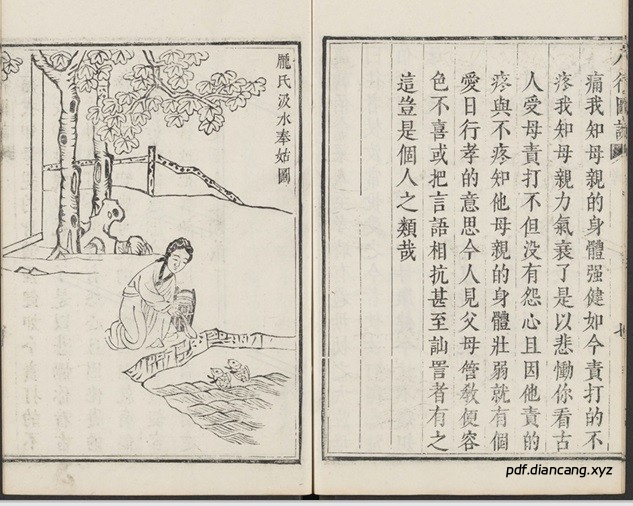 八行圖說
痛我知母親的身體强健如今責打的不
疼我知母親力氣衰了是以悲慟你看古
人愛母責打不但没有怨心且因他責的
疼與不疼知他母親的身體壯弱就有個
愛日行孝的意思今人見父母管敎便容
色不喜或把言語相抗甚至訕詈者有之
這豈是個人之類哉
龐氏汲水奉姑圖
pdf.diancang.xyz